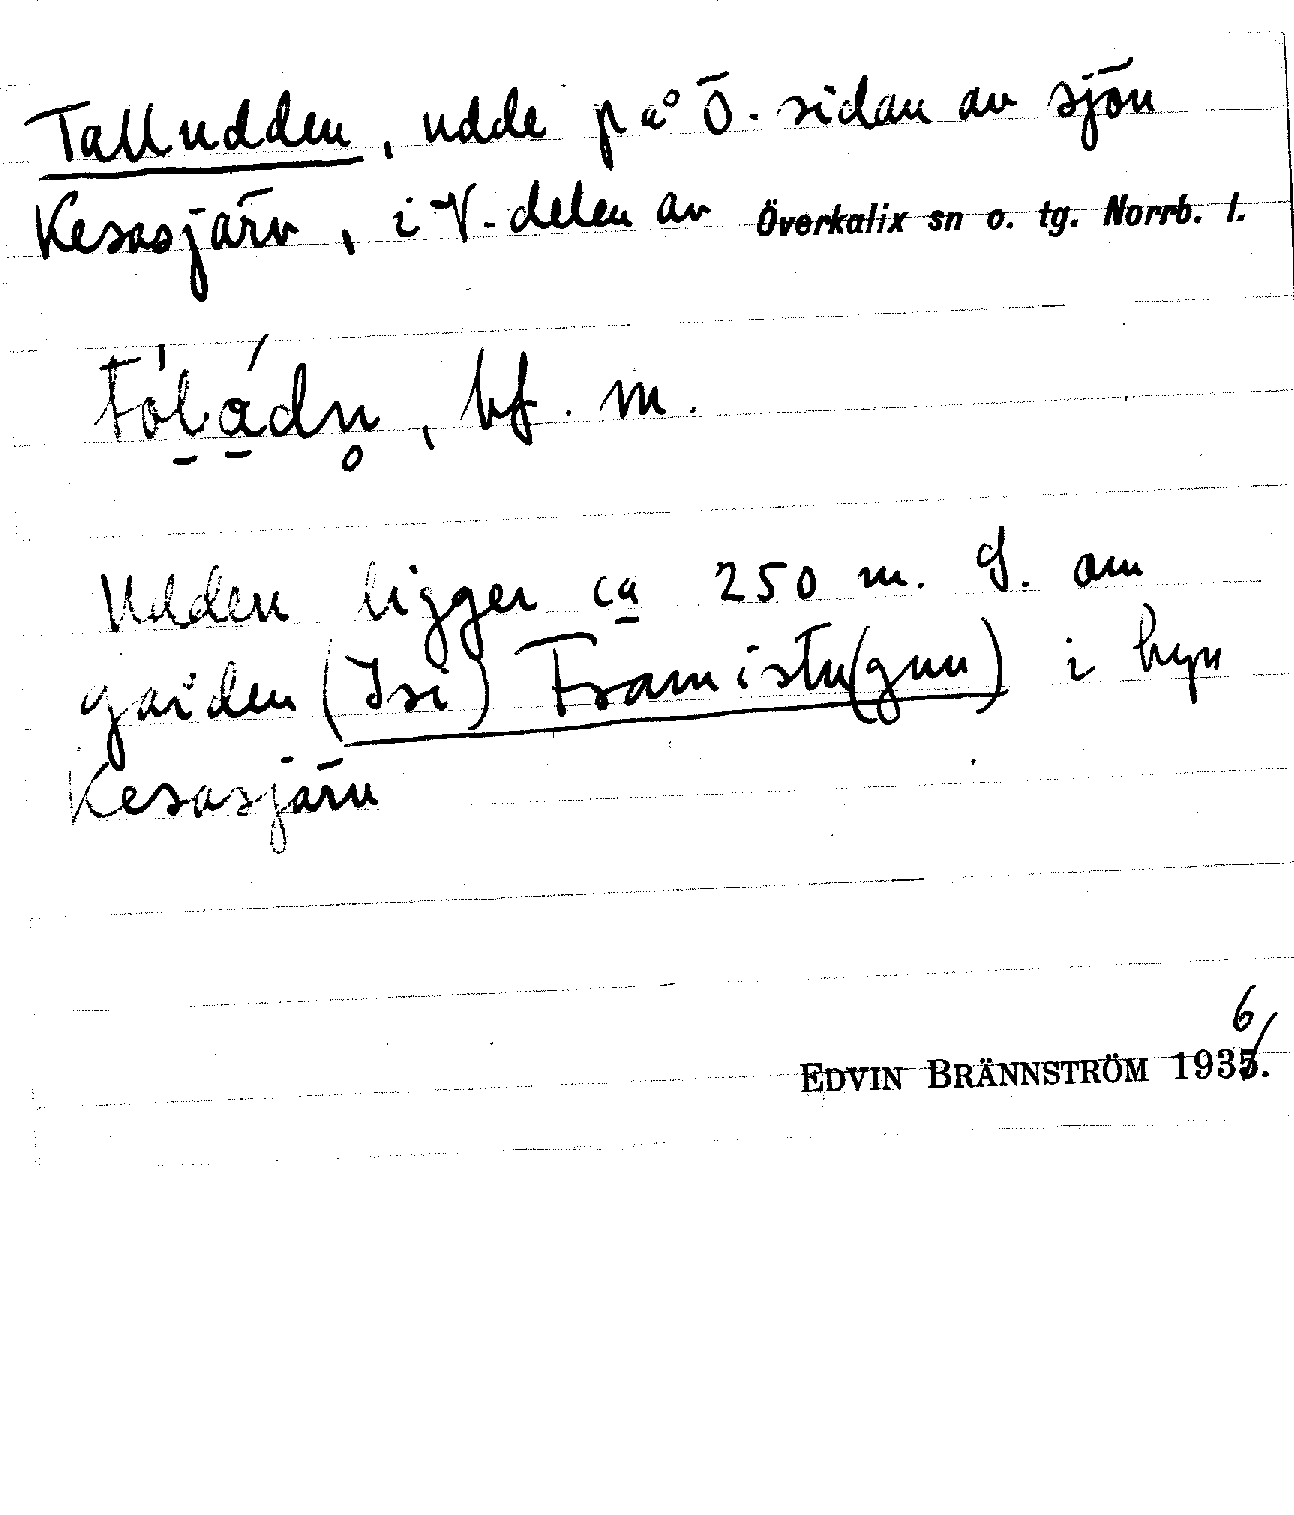 Talludden, udde på Ö. sidan av sjön
Kesasjärv, i V. delen av Överkalix sn o. tg. Norrb. l.
bf. m.
Udden ligger ca 250 m. S. om
gården (Isi) Framistu(gun) i byn
Kesasjärv
6
EDVIN BRÄNNSTRÖM 1935.